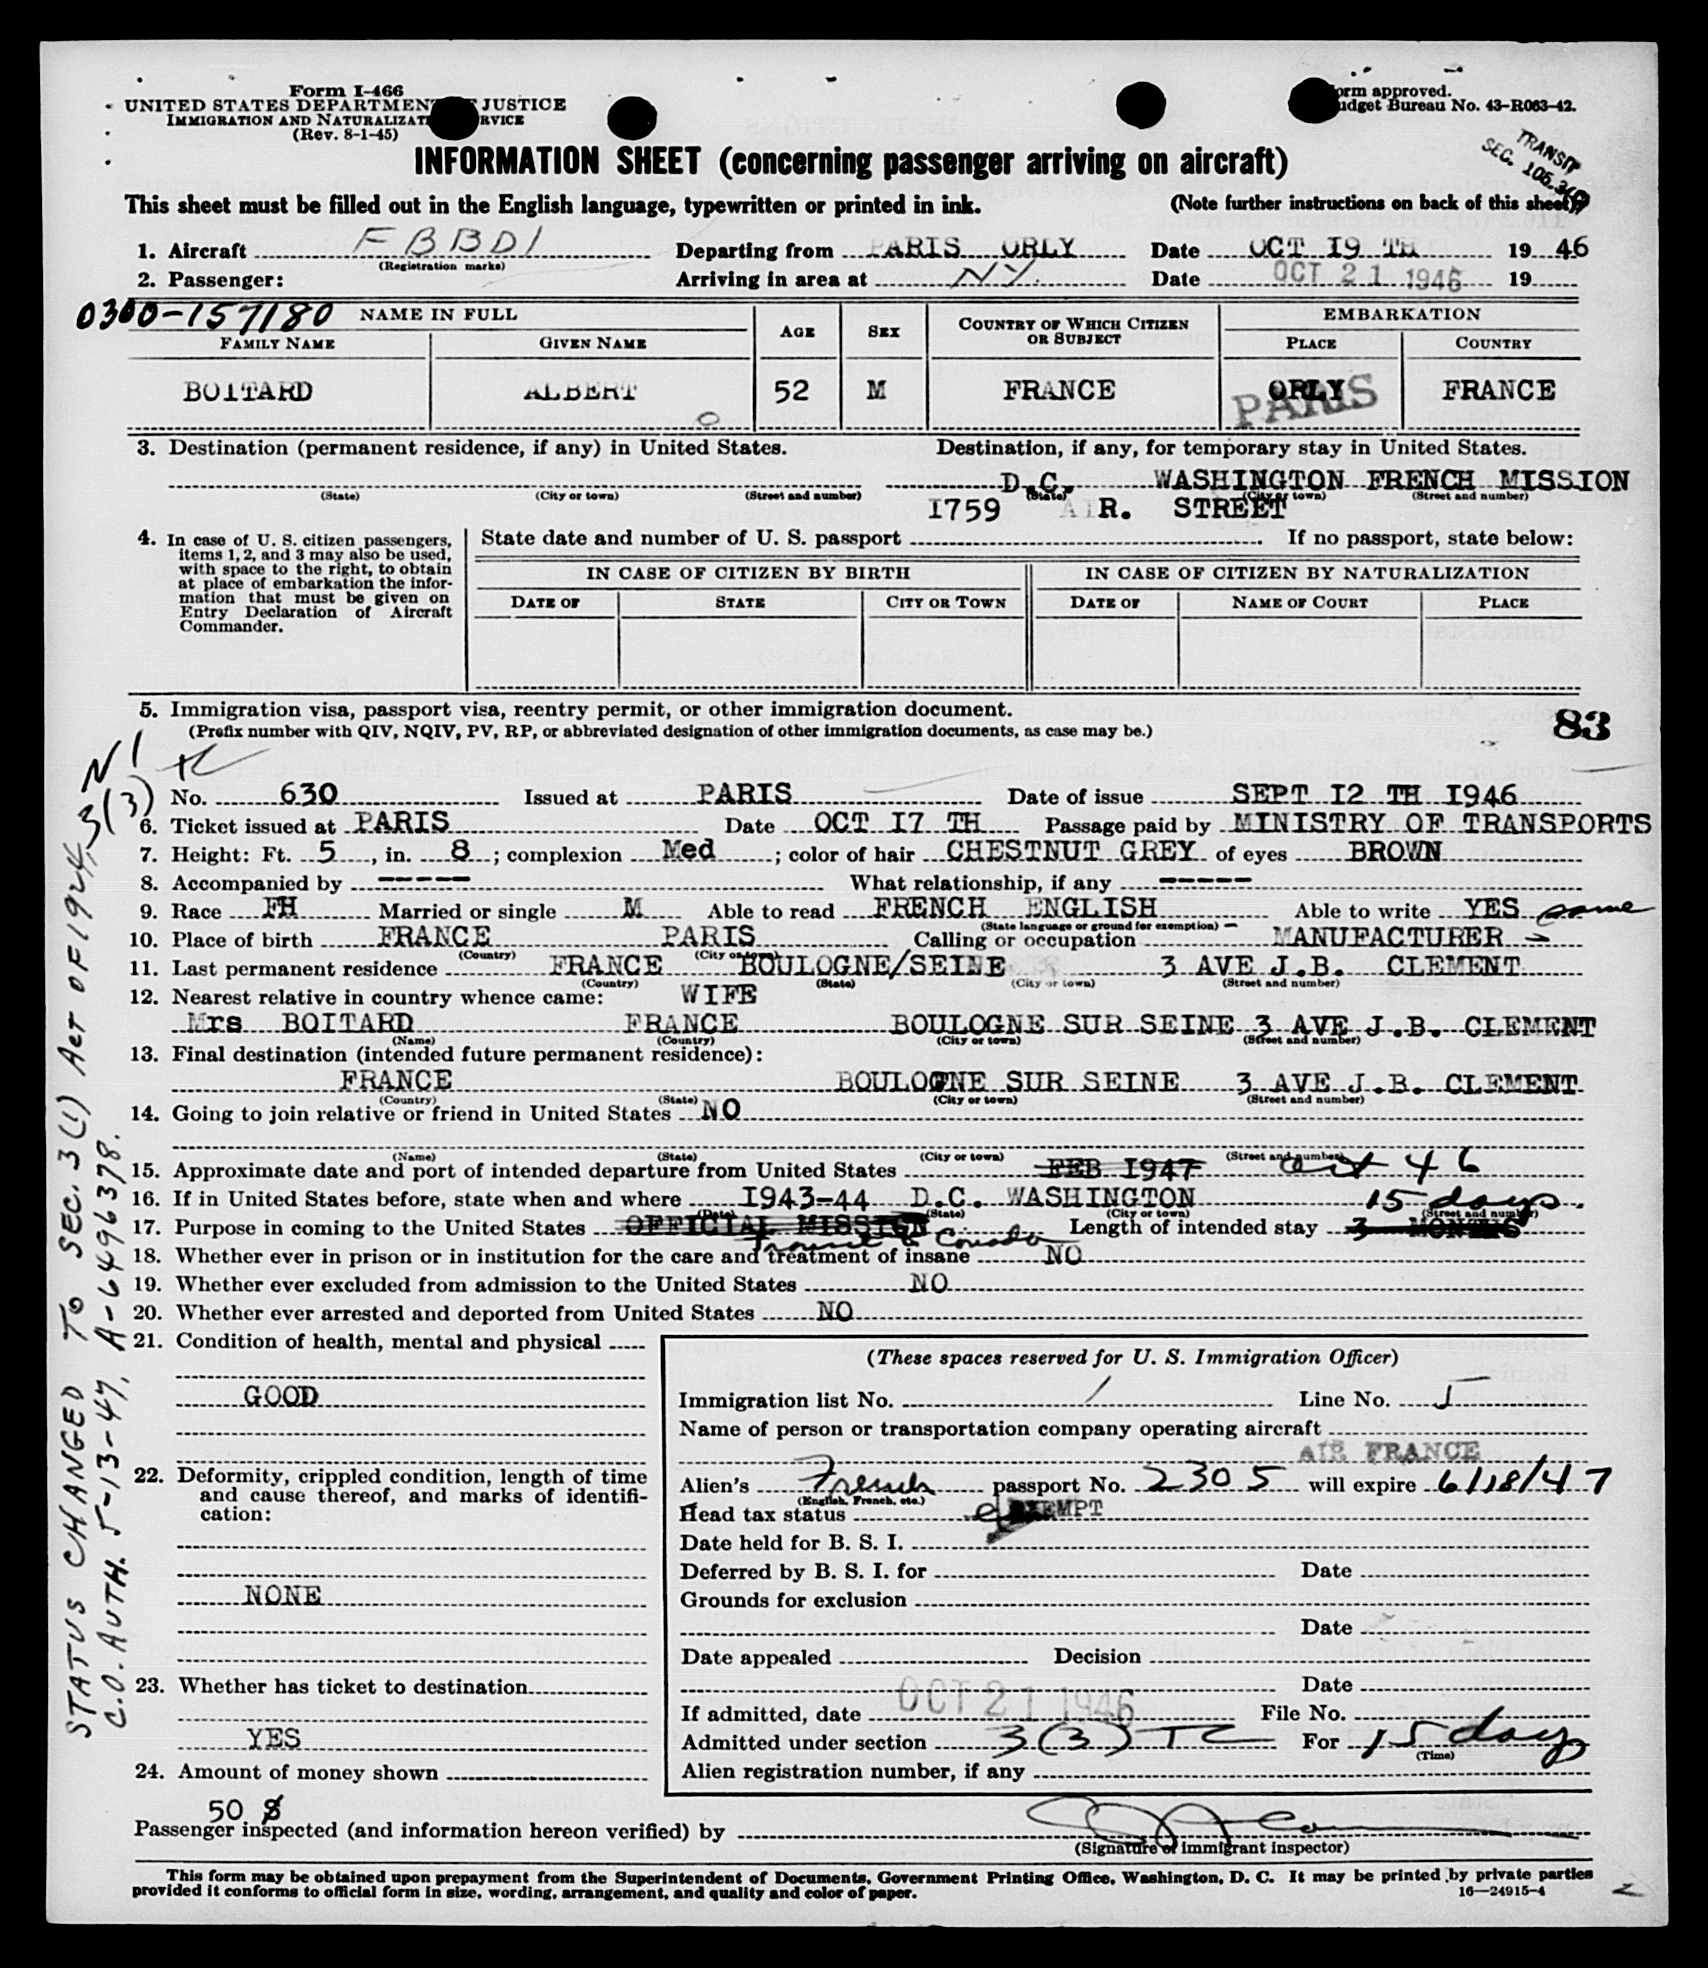 Form I-466
UNITED STATES DEPARTMENT OF JUSTICE
IMMIGRATION AND NATURALIZATION SERVICE
(Rev. 8-1-45)
Form approved.
Budget Bureau No. 43-R063-42.
TRANSIT
SEC. 105.3(
INFORMATION SHEET (concerning passenger arriving on aircraft)
This sheet must be filled out in the English language, typewritten or printed in ink. (Note further instructions on back of this sheet)
1. Aircraft FBBDI Departing from PARIS ORLY Date OCT I9 TH 19 46
(Registration marks)
2. Passenger: Arriving in area at N.Y. Date OCT 21 1946 19
0300-157180 NAME IN FULL AGE SEX COUNTRY OF WHICH CITIZEN OR SUBJECT EMBARKATION
FAMILY NAME GIVEN NAME PLACE COUNTRY
BOITARD ALBERT 52 M FRANCE ORLY PARIS FRANCE
3. Destination (permanent residence, if any) in United States. Destination, if any, for temporary stay in United States.
D.C. WASHINGTON FRENCH MISSION
(State) (City or town) (Street and number) (State) (City or town) (Street and number)
I759 R. STREET
4. In case of U. S. citizen passengers, items 1, 2, and 3 may also be used, with space to the right, to obtain at place of embarkation the information that must be given on Entry Declaration of Aircraft Commander.
State date and number of U. S. passport If no passport, state below:
IN CASE OF CITIZEN BY BIRTH IN CASE OF CITIZEN BY NATURALIZATION
DATE OF STATE CITY OR TOWN DATE OF NAME OF COURT PLACE
5. Immigration visa, passport visa, reentry permit, or other immigration document.
(Prefix number with QIV, NQIV, PV, RP, or abbreviated designation of other immigration documents, as case may be.) 83
No. 630 Issued at PARIS Date of issue SEPT I2 TH I946
6. Ticket issued at PARIS Date OCT I7 TH Passage paid by MINISTRY OF TRANSPORTS
7. Height: Ft. 5, in. 8; complexion Med; color of hair CHESTNUT GREY of eyes BROWN
8. Accompanied by ----- What relationship, if any -----
9. Race FH Married or single M Able to read FRENCH ENGLISH Able to write YES same
(State language or ground for exemption)
10. Place of birth FRANCE PARIS Calling or occupation MANUFACTURER
(Country) (City or town)
11. Last permanent residence FRANCE BOULOGNE/SEINE 3 AVE J.B. CLEMENT
(Country) (State) (City or town) (Street and number)
12. Nearest relative in country whence came: WIFE
Mrs BOITARD FRANCE BOULOGNE SUR SEINE 3 AVE J.B. CLEMENT
(Name) (Country) (City or town) (Street and number)
13. Final destination (intended future permanent residence):
FRANCE BOULOGNE SUR SEINE 3 AVE J.B. CLEMENT
(Country) (State) (City or town) (Street and number)
14. Going to join relative or friend in United States NO
(Name) (State) (City or town) (Street and number)
15. Approximate date and port of intended departure from United States FEB I947 Oct 46
16. If in United States before, state when and where I943-44 D.C. WASHINGTON 15 days
(Date) (State) (City or town) (Street and number)
17. Purpose in coming to the United States OFFICIAL MISSION Length of intended stay 3 MONTHS
Transit to Canada
18. Whether ever in prison or in institution for the care and treatment of insane NO
19. Whether ever excluded from admission to the United States NO
20. Whether ever arrested and deported from United States NO
21. Condition of health, mental and physical
GOOD
22. Deformity, crippled condition, length of time and cause thereof, and marks of identification:
NONE
23. Whether has ticket to destination
YES
24. Amount of money shown
50 $
(These spaces reserved for U. S. Immigration Officer)
Immigration list No. 1 Line No. 5
Name of person or transportation company operating aircraft
AIR FRANCE
Alien's French passport No. 2305 will expire 6/18/47
(English, French, etc.)
Head tax status EXEMPT
Date held for B. S. I.
Deferred by B. S. I. for Date
Grounds for exclusion
Date
Date appealed Decision
Date
If admitted, date OCT 21 1946 File No.
Admitted under section 3(3) TC For 15 days
(Time)
Alien registration number, if any
Passenger inspected (and information hereon verified) by
(Signature of immigrant inspector)
This form may be obtained upon prepayment from the Superintendent of Documents, Government Printing Office, Washington, D. C. It may be printed by private parties
provided it conforms to official form in size, wording, arrangement, and quality and color of paper. 16—24915-4
STATUS CHANGED TO SEC. 3(1) ACT OF 1924, 3(3)
C.O. AUTH. 5-13-47, A-6496378.